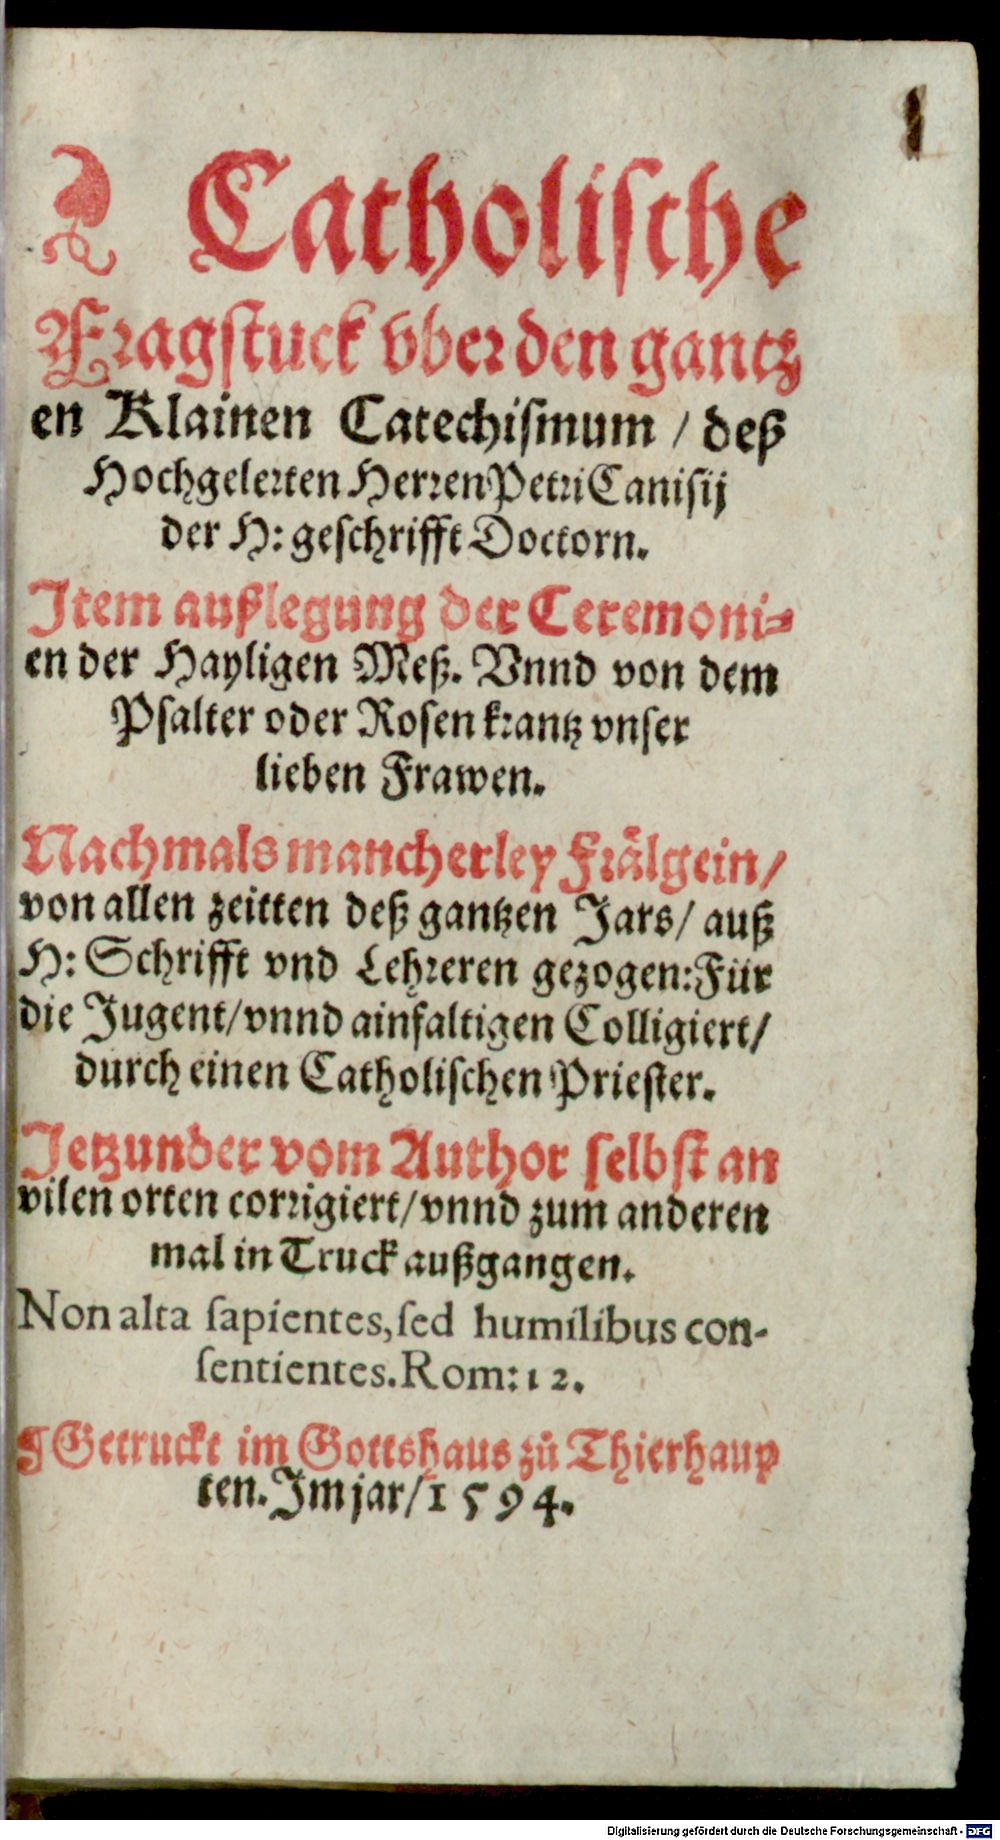 Catholische
Fragstuck vber den gantz
en Klainen Catechismum / deß
Hochgelerten Herren Petri Canisij
der H: geschrifft Doctorn.
Item außlegung der Ceremoni-
en der Hayligen Meß. Vnnd von dem
Psalter oder Rosenkrantz vnser
lieben Frawen.
Nachmals mancherley Frälgein/
von allen zeitten deß gantzen Jars/ auß
H: Schrifft vnd Lehreren gezogen: Für
die Jugent/ vnnd ainfaltigen Colligiert/
durch einen Catholischen Priester.
Jetzunder vom Author selbst an
vilen orten corrigiert/ vnnd zum anderen
mal in Truck außgangen.
Non alta sapientes, sed humilibus con-
sentientes. Rom: 12.
¶ Getruckt im Gottshaus zů Thierhaup
ten. Im jar/ 1594.
Digitalisierung gefördert durch die Deutsche Forschungsgemeinschaft - DFG